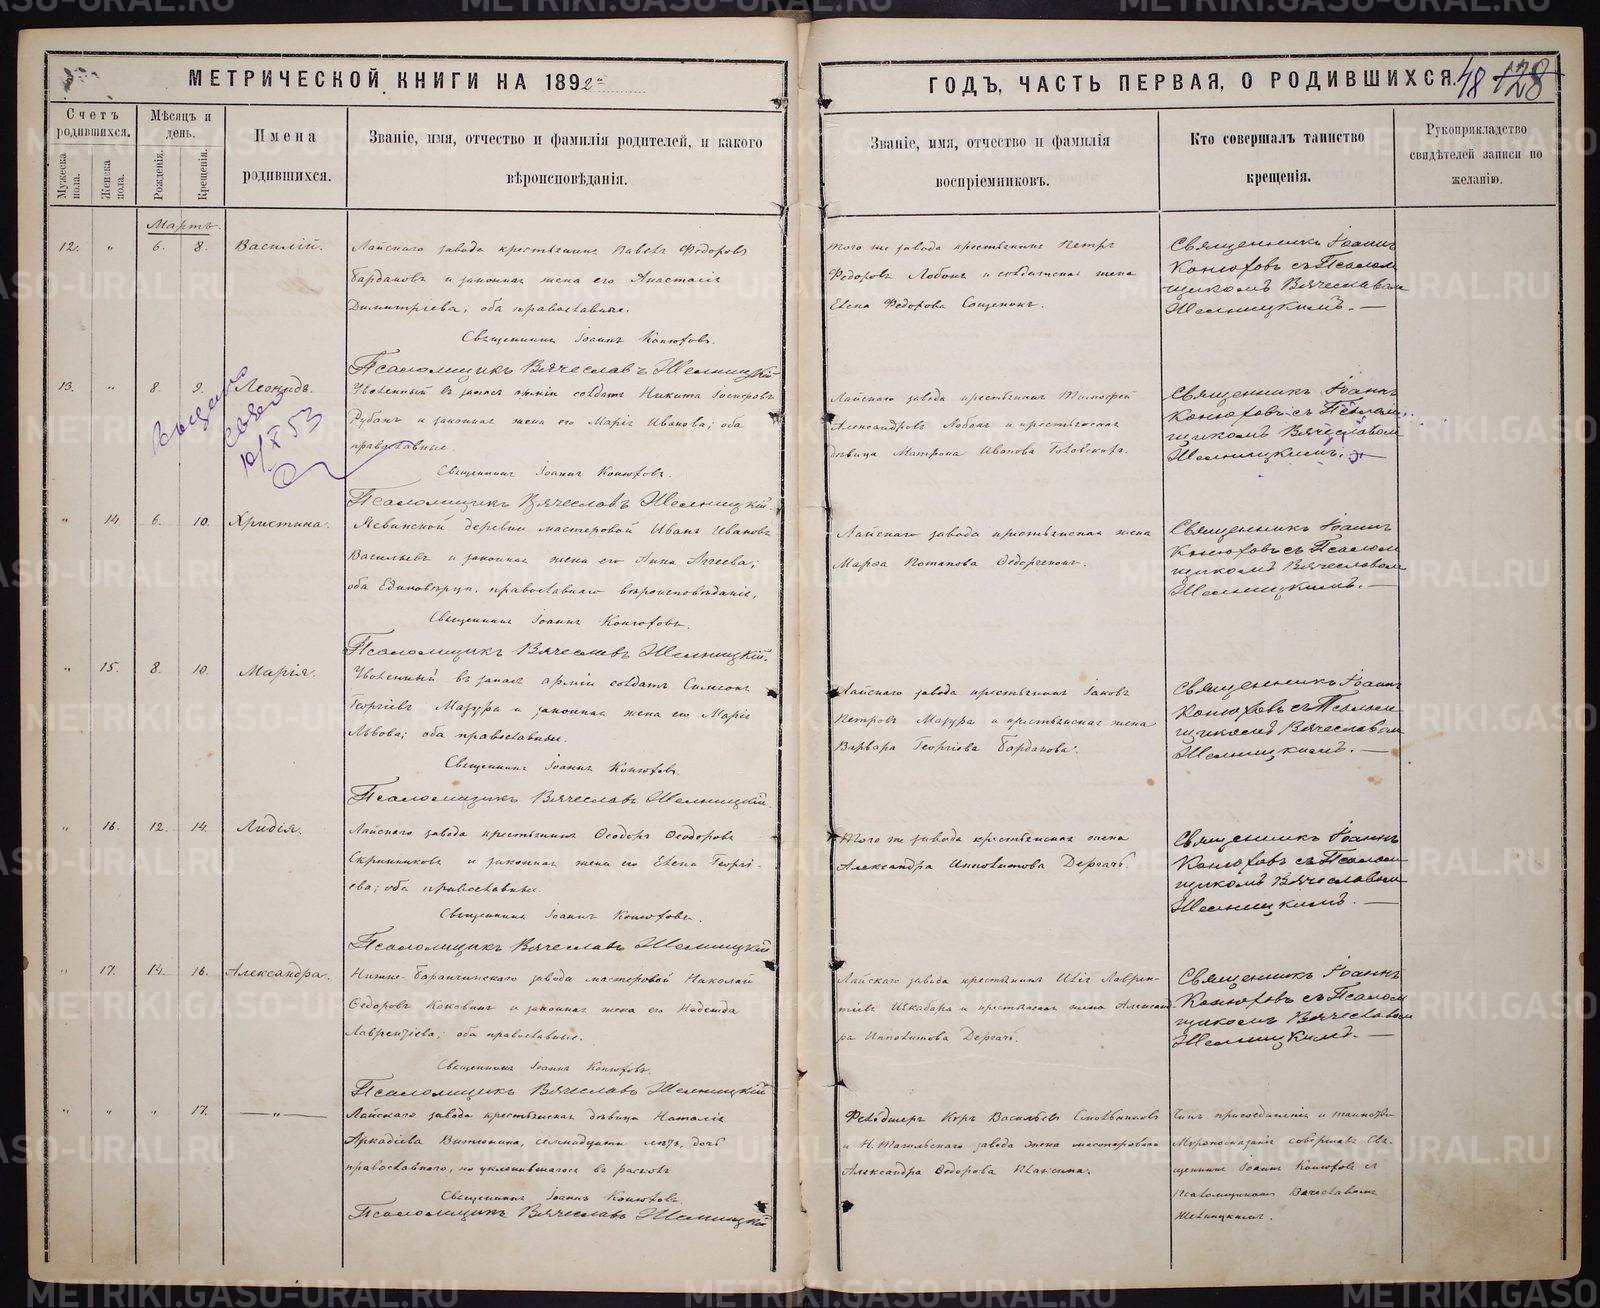 МЕТРИЧЕСКОЙ КНИГИ НА 1892 й
ГОДЪ, ЧАСТЬ ПЕРВАЯ, О РОДИВШИХСЯ.
48 128
Счетъ родившихся.
Мужеска пола.
Женска пола.
Мѣсяцъ и день.
Рожденія.
Крещенія.
Имена
родившихся.
Званіе, имя, отчество и фамилія родителей, и какого
вѣроисповѣданія.
Званіе, имя, отчество и фамилія
воспріемниковъ.
Кто совершалъ таинство
крещенія.
Рукоприкладство
свидѣтелей записи по
желанію.
Мартъ.
12. " 6. 8. Василій.
Лайскаго завода крестьянинъ Павелъ Федоровъ
Бардаковъ и законная жена его Анастасія
Димитріева; оба православные.
Священникъ Іоаннъ Конюховъ.
Псаломщикъ Вячеславъ Шелницкій
того же завода крестьянинъ Петръ
Федоровъ Лобанъ и солдатская жена
Елена Федорова Сощенокъ.
Священникъ Іоаннъ
Конюховъ съ Псалом
щикомъ Вячеславом
Шелницкимъ.
13. " 8. 9. Леонидъ.
10/X 53
Уволенный въ запасъ арміи солдатъ Никита
Рубанъ и законная жена его Марія Иванова; оба
православные.
Священникъ Іоаннъ Конюховъ.
Псаломщикъ Вячеславъ Шелницкій.
Лайскаго завода крестьянинъ Тимофей
Александровъ Лобанъ и крестьянская
дѣвица Матрона Иванова
Священникъ Іоаннъ
Конюховъ съ Псалом
щикомъ Вячеславом
Шелницкимъ.
" 14. 6. 10. Христина.
деревни мастеровой Иванъ Ивановъ
Васильевъ и законная жена его Анна Аггеева;
оба Единовѣрч. православнаго вѣроисповѣданія.
Священникъ Іоаннъ Конюховъ.
Псаломщикъ Вячеславъ Шелницкій.
Лайскаго завода крестьянская жена
Марфа Потапова Ѳедорченокъ.
Священникъ Іоаннъ
Конюховъ съ Псалом
щикомъ Вячеславом
Шелницкимъ.
" 15. 8. 10. Марія.
Уволенный въ запасъ арміи солдатъ Симеонъ
Георгіевъ Мазура и законная жена его Марія
Львова; оба православные.
Священникъ Іоаннъ Конюховъ.
Псаломщикъ Вячеславъ Шелницкій.
Лайскаго завода крестьянинъ Іаковъ
Петровъ Мазура и крестьянская жена
Варвара Георгіева Бардакова.
Священникъ Іоаннъ
Конюховъ съ Псалом
щикомъ Вячеславом
Шелницкимъ.
" 16. 12. 14. Лидія.
Лайскаго завода крестьянинъ Ѳеодоръ Ѳеодоровъ
Скринниковъ и законная жена его Елена Георгі-
ева; оба православные.
Священникъ Іоаннъ Конюховъ.
Псаломщикъ Вячеславъ Шелницкій
Того же завода крестьянская жена
Александра Ипполитова Дергачъ.
Священникъ Іоаннъ
Конюховъ съ Псалом
щикомъ Вячеславом
Шелницкимъ.
" 17. 14. 16. Александра.
Нижне-Баранчинскаго завода мастеровой Николай
Ѳедоровъ Коковинъ и законная жена его Надежда
Лаврентіева; оба православные.
Священникъ Іоаннъ Конюховъ.
Псаломщикъ Вячеславъ Шелницкій
Лайскаго завода крестьянинъ Илія Лаврен-
тіевъ Шкабара и крестьянская жена Александ
ра Ипполитова Дергачъ.
Священникъ Іоаннъ
Конюховъ съ Псалом
щикомъ Вячеславом
Шелницкимъ.
" " " 17. — " —
Лайскаго завода крестьянская дѣвица Наталія
Аркадіева Витюнина, семнадцати лѣтъ, дочь
православнаго, но уклонившагося въ расколъ
Священникъ Іоаннъ Конюховъ.
Псаломщикъ Вячеславъ Шелницкій
Фельдшеръ Киръ Васильевъ
и Н. Тагильскаго завода жена мастероваго
Александра Ѳедорова Плаксина.
Чинъ присоединенія и таинство
Мѵропомазанія совершалъ Свя-
щенникъ Іоаннъ Конюховъ съ
Псаломщикомъ Вячеславомъ
Шелницкимъ.
METRIKI.GASO-URAL.RU